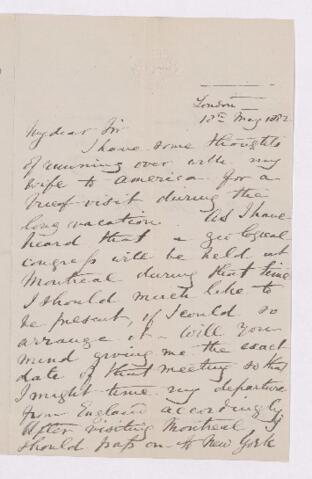 London
12th May 1882
My dear Sir
I have some thoughts
of running over with my
wife to America for a
brief visit during the
long vacation. As I have
heard that a geological
congress will be held at
Montreal during that time
I should much like to
be present, if I could so
arrange it - Will you
mind giving me the exact
date of that meeting so that
I might time my departure
from England accordingly
After visiting Montreal I
should pass on to New York